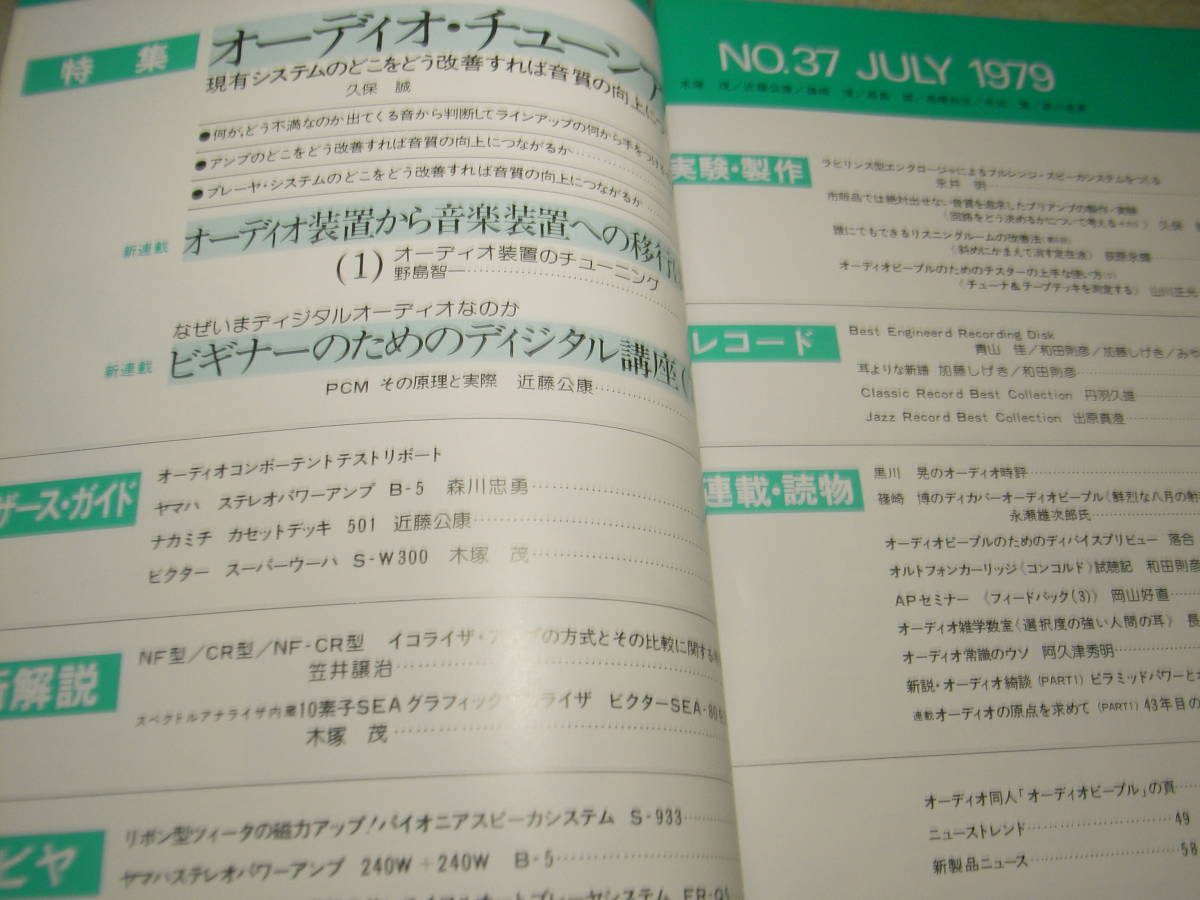 特集
オーディオ・チューン
現有システムのどこをどう改善すれば音質の向上につ
久保 誠
●何が、どう不満なのか出てくる音から判断してラインアップの何から手をつける
●アンプのどこをどう改善すれば音質の向上につながるか
●プレーヤ・システムのどこをどう改善すれば音質の向上につながるか
新連載 オーディオ装置から音楽装置への移行
(1) オーディオ装置のチューニング
野島智一
なぜいまディジタルオーディオなのか
新連載 ビギナーのためのディジタル講座(
PCM その原理と実際 近藤公康
ザース・ガイド
オーディオコンポーテントテストリポート
ヤマハ ステレオパワーアンプ B-5 森川忠勇
ナカミチ カセットデッキ 501 近藤公康
ビクター スーパーウーハ S-W300 木塚 茂
解説
NF型/CR型/NF-CR型 イコライザ・ の方式とその比較に関する
笠井譲治
スペクトルアナライザ内蔵10素子SEAグラフィック ライザ ビクターSEA-80
木塚 茂
ビヤ
リボン型ツィータの磁力アップ!パイオニアスピーカシステム S-933
ヤマハステレオパワーアンプ 240W+240W B-5
オートプレーヤシステム
NO.37 JULY 1979
実験・製作
ラビリンス型エンクロージャによるフルレンジ・スピーカシステムをつくる
市販品では絶対出せない音質を追求したプリアンプの製作・実験
《回路をどう決めるかについて考える 》 久保
誰にでもできるリスニングルームの改善法
《斜めにかまえて消す定在波》 荻原永輝
オーディオピープルのためのテスターの上手な使い方
《チューナ&テープデッキを測定する》 山川正光
レコード
Best Engineerd Recording Disk
青山 佳/和田則彦/加藤しげき/みや
耳よりな新譜 加藤しげき/和田則彦
Classic Record Best Collection 丹羽久雄
Jazz Record Best Collection 出原真澄
連載・読物
黒川 晃のオーディオ時評
篠崎 博のディカバーオーディオピープル《鮮烈な八月の射
永瀬雄次郎氏
オーディオピープルのためのディバイスプリビュー 落合
オルトフォンカーリッジ《コンコルド》試聴記 和田則彦
APセミナー 《フィードバック(3)》 岡山好直
オーディオ雑学教室《選択度の強い人間の耳》 長
オーディオ常識のウソ 阿久津秀明
新説・オーディオ綺談(PART1)ピラミッドパワーと
連載オーディオの原点を求めて(PART1)43年目の
オーディオ同人「オーディオピープル」の頁
ニューストレンド 49
新製品ニュース 58